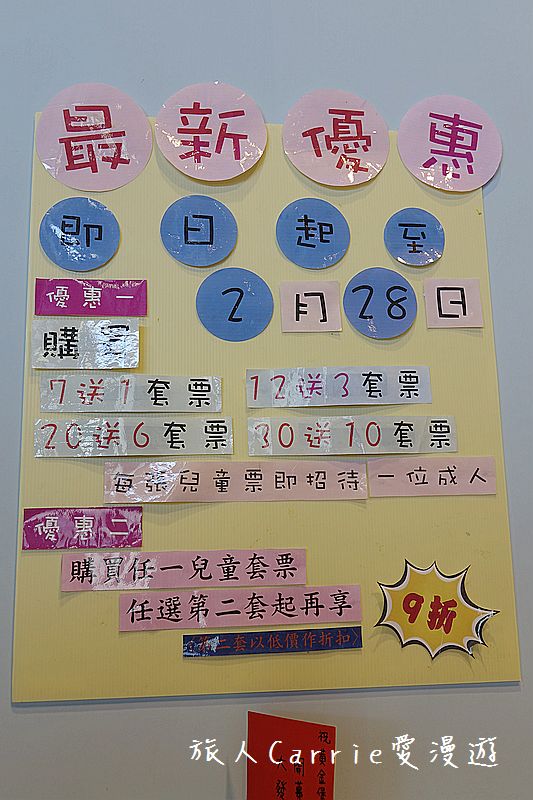 最新優惠
即日起至
2月28日
優惠一
購買
7送1套票
12送3套票
20送6套票
30送10套票
每張兒童票即招待一位成人
優惠二
購買任一兒童套票
任選第二套起再享
9折
(第二套以低價作折扣)
旅人Carrie愛漫遊